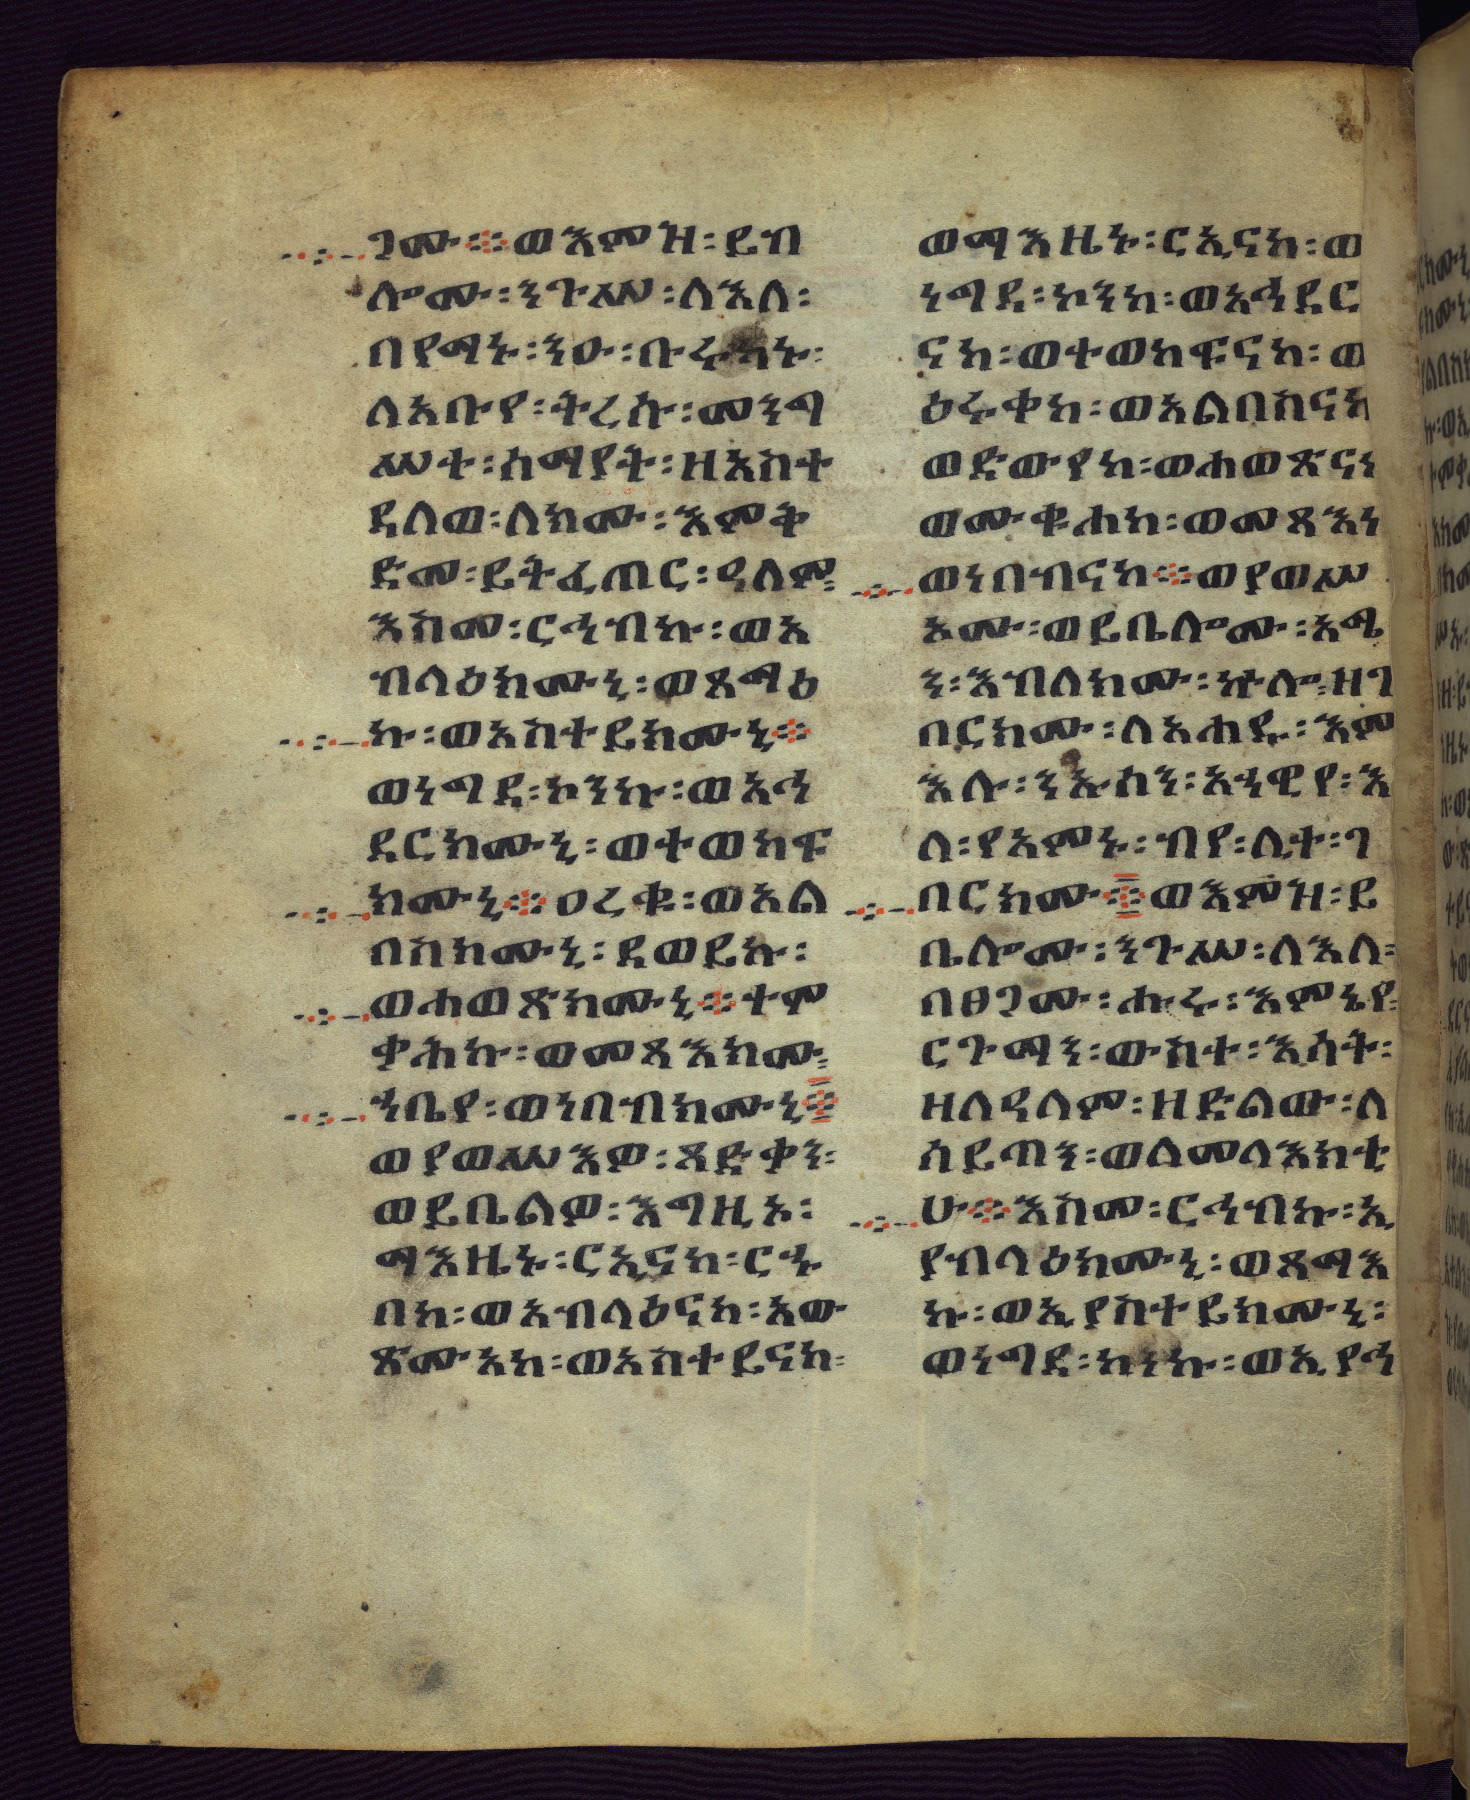 ጋሙ ። ወእምዝ ፡ ይብ
ሎሙ ፡ ንጉሥ ፡ ለእለ ፡
በየማኑ ፡ ንዑ ፡ ቡሩካኑ ፡
ለአቡየ ፡ ትረሱ ፡ መንግ
ሥተ ፡ ሰማያት ፡ ዘአስተ
ዳለወ ፡ ለክሙ ፡ እምቅ
ድመ ፡ ይትፈጠር ፡ ዓለም ፡
እስመ ፡ ርኅብኩ ፡ ወአ
ብላዕክሙኒ ፡ ወጸማዕ
ኩ ፡ ወአስተይክሙኒ ።
ወነግደ ፡ ኮንኩ ፡ ወአኅ
ደርክሙኒ ፡ ወተወከፍ
ክሙኒ ። ዐረቁ ፡ ወአል
በስክሙኒ ፡ ደወይኩ ፡
ወሐወጽክሙኒ ። ተሞ
ቃሕኩ ፡ ወመጻእክሙ ፡
ኀቤየ ፡ ወነበብክሙኒ ።
ወያወሥእዎ ፡ ጻድቃን ፡
ወይቤልዎ ፡ እግዚኦ ፡
ማእዜኑ ፡ ርኢናከ ፡ ርኁ
በከ ፡ ወአብላዕናከ ፡ አው
ጽሙአከ ፡ ወአስተይናከ ፡
ወማእዜኑ ፡ ርኢናከ ፡ ወ
ነግደ ፡ ኮንከ ፡ ወአኅደር
ናከ ፡ ወተወከፍናከ ፡ ወ
ዕሩቀከ ፡ ወአልበስናከ
ወድውየከ ፡ ወሐወጽናከ
ወሙቁሐከ ፡ ወመጻእነ
ወነበብናከ ። ወያወሥ
አሙ ፡ ወይቤሎሙ ፡ አማ
ን ፡ እብለክሙ ፡ ኵሎ ፡ ዘገ
በርክሙ ፡ ለአሐዱ ፡ እም
እሉ ፡ ንኡሰን ፡ አኃዊየ ፡ እ
ለ ፡ የአምኑ ፡ ብየ ፡ ሊተ ፡ ገ
በርክሙ ። ወእምዝ ፡ ይ
ቤሎሙ ፡ ንጉሥ ፡ ለእለ ፡
በፀጋሙ ፡ ሑሩ ፡ እምኔየ ፡
ርጉማን ፡ ውስተ ፡ እሳት ፡
ዘለዓለም ፡ ዘድልው ፡ ለ
ሰይጣን ፡ ወለመላእክቲ
ሁ ። እስመ ፡ ርኅብኩ ፡ ኢ
ያብላዕክሙኒ ፡ ወጸማእ
ኩ ፡ ወኢያስተይክሙኒ ፡
ወነግደ ፡ ኮንኩ ፡ ወኢያኅ